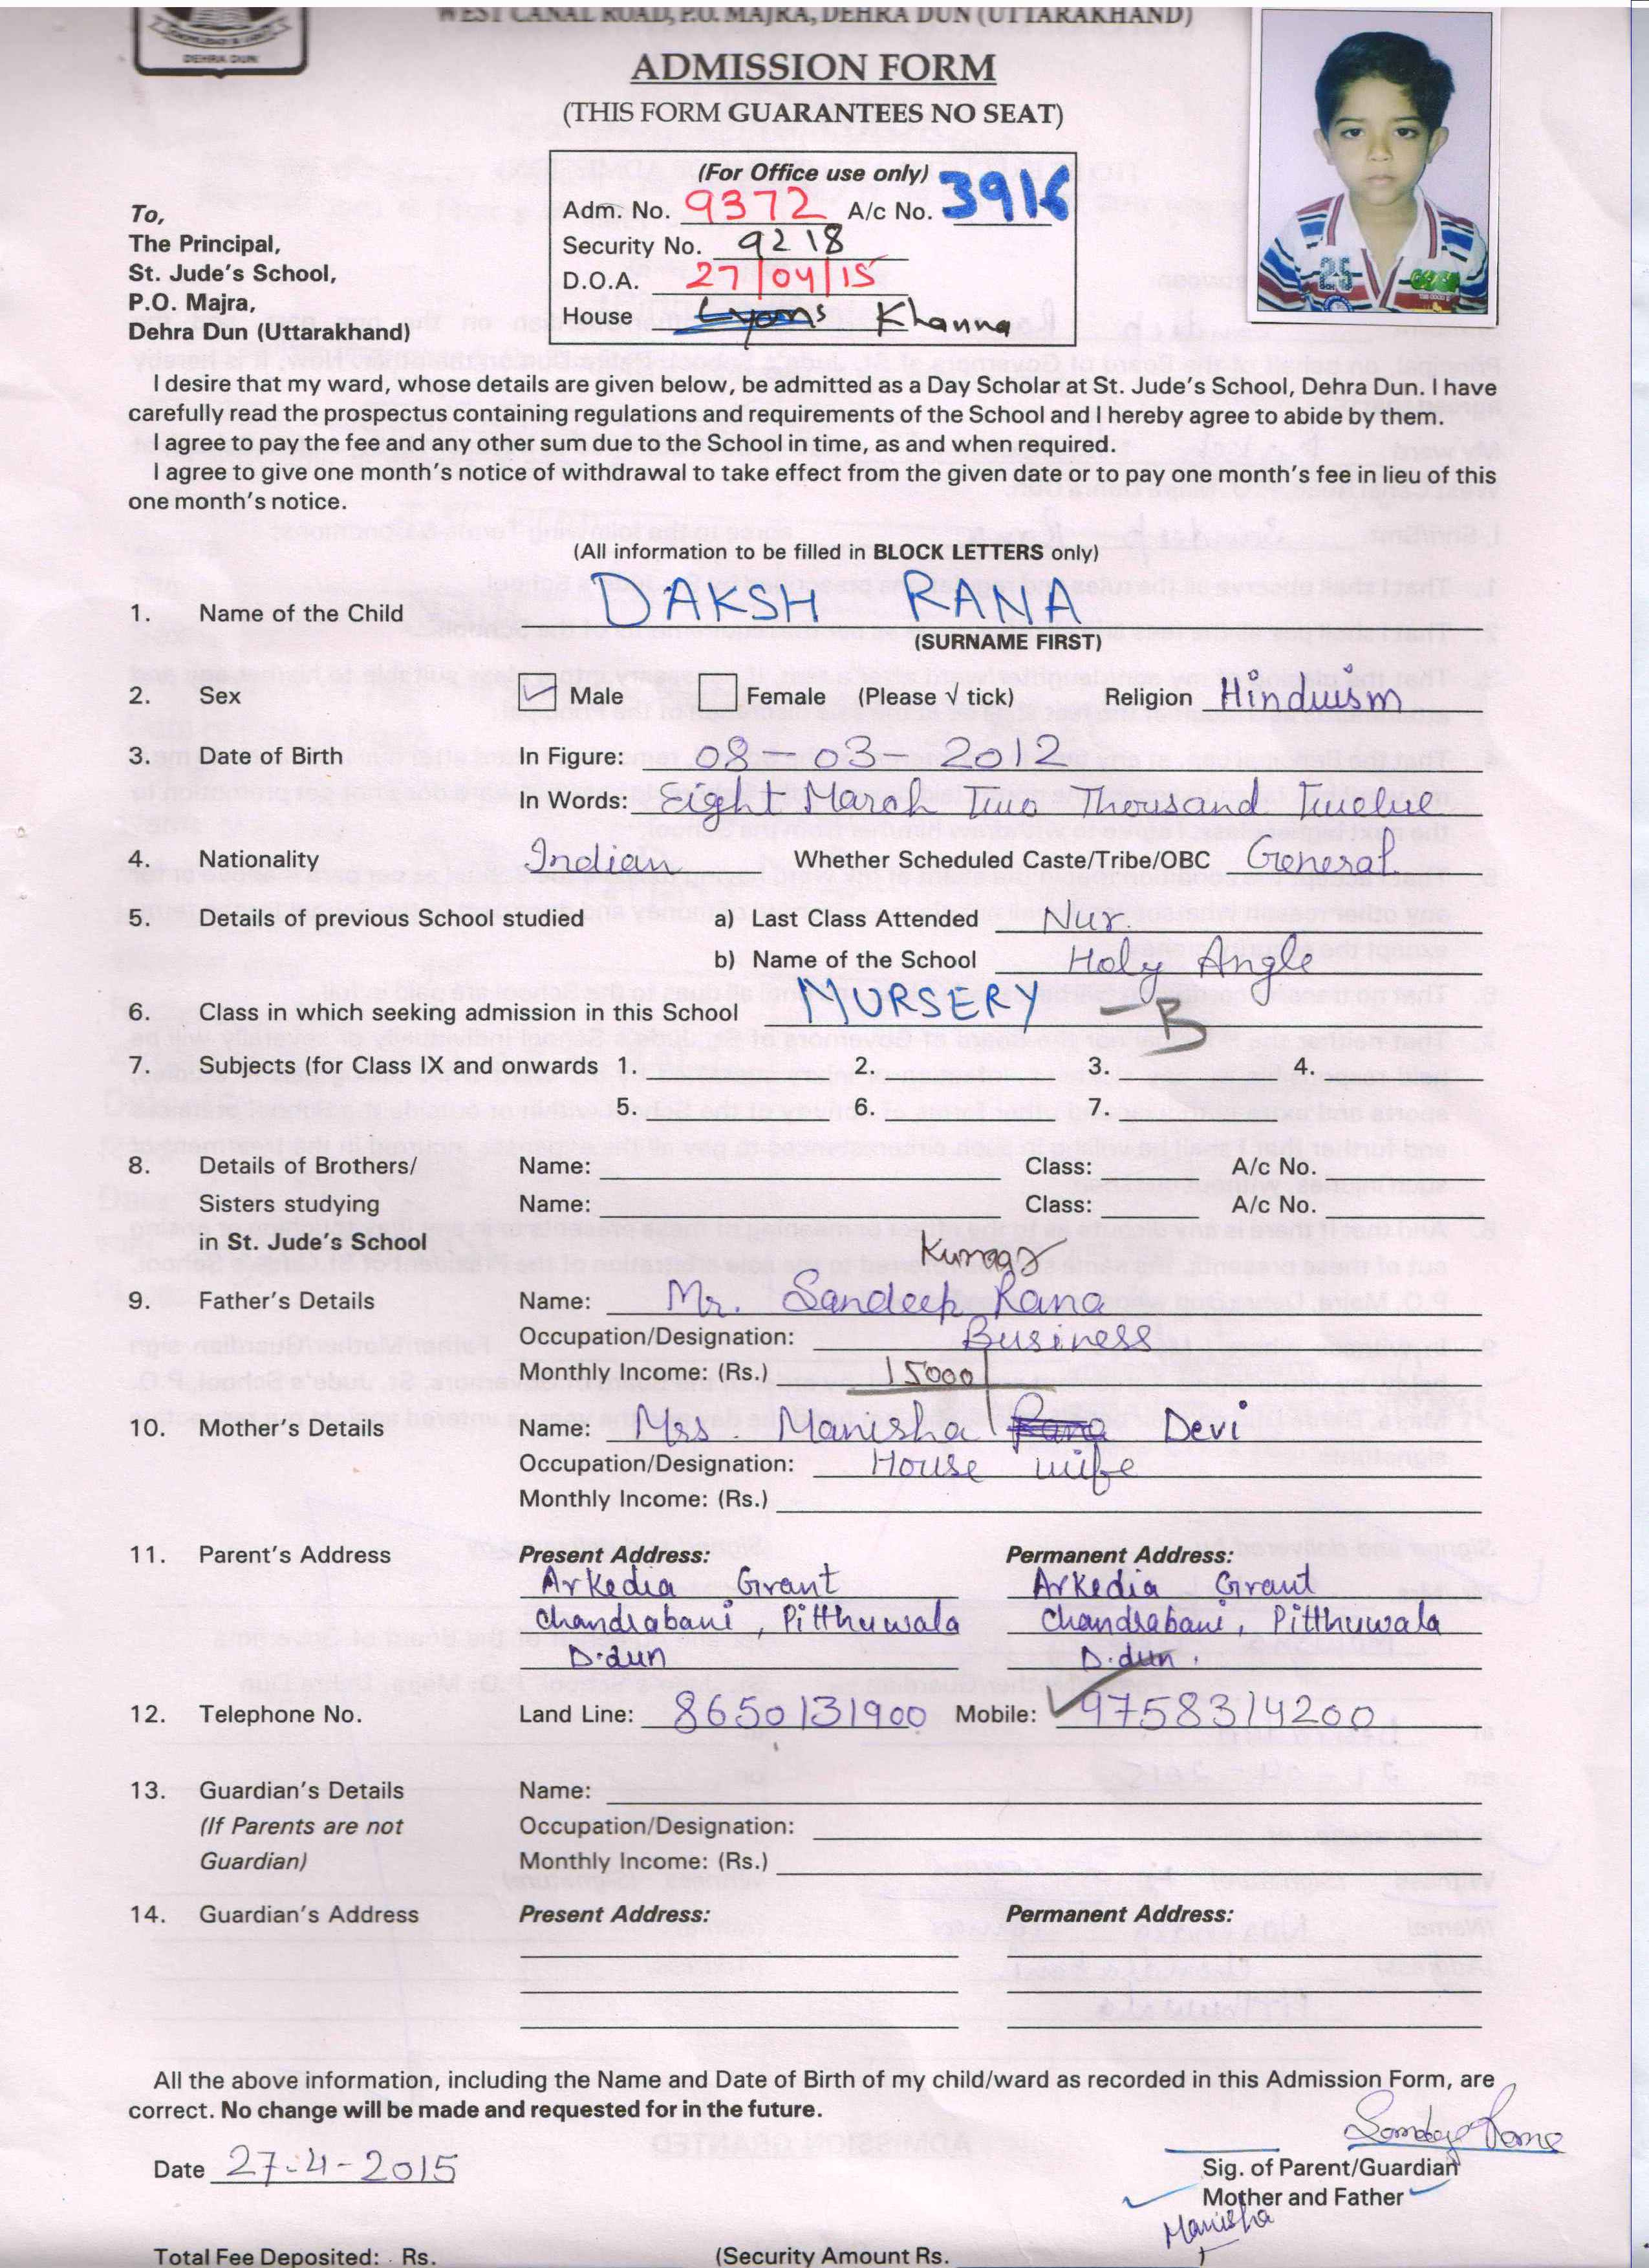 WEST CANAL ROAD, P.O. MAJRA, DEHRA DUN (UTTARAKHAND)
DEHRA DUN
ADMISSION FORM
(THIS FORM GUARANTEES NO SEAT)
(For Office use only)
Adm. No. 9372 A/c No. 3916
Security No. 9218
D.O.A. 27/04/15
House Lyons Khanna
To,
The Principal,
St. Jude's School,
P.O. Majra,
Dehra Dun (Uttarakhand)
I desire that my ward, whose details are given below, be admitted as a Day Scholar at St. Jude's School, Dehra Dun. I have
carefully read the prospectus containing regulations and requirements of the School and I hereby agree to abide by them.
I agree to pay the fee and any other sum due to the School in time, as and when required.
I agree to give one month's notice of withdrawal to take effect from the given date or to pay one month's fee in lieu of this
one month's notice.
(All information to be filled in BLOCK LETTERS only)
1. Name of the Child DAKSH RANA
(SURNAME FIRST)
2. Sex Male Female (Please √ tick) Religion Hinduism
3. Date of Birth In Figure: 08-03-2012
In Words: Eight March Two Thousand Twelve
4. Nationality Indian Whether Scheduled Caste/Tribe/OBC General
5. Details of previous School studied a) Last Class Attended Nur.
b) Name of the School Holy Angle
6. Class in which seeking admission in this School NURSERY - B
7. Subjects (for Class IX and onwards 1. 2. 3. 4.
5. 6. 7.
8. Details of Brothers/ Name: Class: A/c No.
Sisters studying Name: Class: A/c No.
in St. Jude's School
Kumar
9. Father's Details Name: Mr. Sandeep Rana
Occupation/Designation: Business
Monthly Income: (Rs.) 15000/
10. Mother's Details Name: Mrs. Manisha Rana Devi
Occupation/Designation: House wife
Monthly Income: (Rs.)
11. Parent's Address Present Address: Permanent Address:
Arkedia Grant Arkedia Grant
Chandrabani, Pitthuwala Chandrabani, Pitthuwala
D.dun D.dun.
12. Telephone No. Land Line: 8650131900 Mobile: 9758314200
13. Guardian's Details Name:
(If Parents are not Occupation/Designation:
Guardian) Monthly Income: (Rs.)
14. Guardian's Address Present Address: Permanent Address:
All the above information, including the Name and Date of Birth of my child/ward as recorded in this Admission Form, are
correct. No change will be made and requested for in the future.
Date 27-4-2015
Sig. of Parent/Guardian
Mother and Father
Manisha
Total Fee Deposited: Rs. (Security Amount Rs.